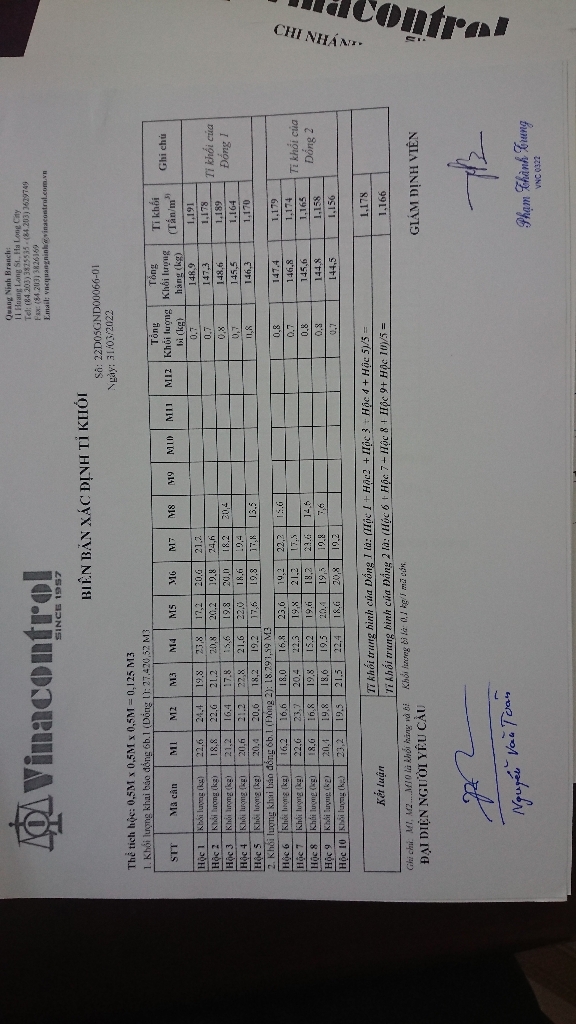 Vinacontrol
CHI NHÁNH
Vinacontrol
SINCE 1957
Quang Ninh Branch:
11 Hoang Long St., Ha Long City
Tel: (84.203) 3825535 - (84.203) 3629749
Fax: (84.203) 3826169
Email: vncquangninh@vinacontrol.com.vn
BIÊN BẢN XÁC ĐỊNH TỈ KHỐI
Số: 22D05GND00066-01
Ngày: 31/03/2022
Thể tích hộc: 0,5M x 0,5M x 0,5M = 0,125 M3
1. Khối lượng khai báo đống 6b.1 (Đống 1): 27.420,52 M3
STT Mã cân M1 M2 M3 M4 M5 M6 M7 M8 M9 M10 M11 M12 Tổng Khối lượng bì (kg) Tổng Khối lượng hàng (kg) Tỉ khối (Tấn/m³) Ghi chú
Hộc 1 Khối lượng (kg) 22,6 24,4 19,8 23,8 17,2 20,6 21,2 0,7 148,9 1,191
Hộc 2 Khối lượng (kg) 18,8 22,6 21,2 20,8 20,2 19,8 24,6 0,7 147,3 1,178
Hộc 3 Khối lượng (kg) 21,2 16,4 17,8 15,6 19,8 20,0 18,2 20,4 0,8 148,6 1,189
Hộc 4 Khối lượng (kg) 20,6 21,2 22,8 21,6 22,0 18,6 19,4 0,7 145,5 1,164
Hộc 5 Khối lượng (kg) 20,4 20,6 18,2 19,2 17,6 19,8 17,8 13,5 0,8 146,3 1,170
Tỉ khối của Đống 1
2. Khối lượng khai báo đống 6b.1 (Đống 2): 18.291,59 M3
Hộc 6 Khối lượng (kg) 16,2 16,6 18,0 16,8 23,6 19,2 22,2 15,6 0,8 147,4 1,179
Hộc 7 Khối lượng (kg) 22,6 23,7 20,4 22,3 19,8 21,2 17,5 0,7 146,8 1,174
Hộc 8 Khối lượng (kg) 18,6 16,8 19,8 15,2 19,6 18,2 23,6 14,6 0,8 145,6 1,165
Hộc 9 Khối lượng (kg) 20,4 19,8 18,6 19,5 20,4 19,5 19,8 7,6 0,8 144,8 1,158
Hộc 10 Khối lượng (kg) 23,2 19,5 21,5 22,4 18,6 20,8 19,2 0,7 144,5 1,156
Tỉ khối của Đống 2
Kết luận
Tỉ khối trung bình của Đống 1 là: (Hộc 1 + Hộc2 + Hộc 3 + Hộc 4 + Hộc 5)/5 = 1,178
Tỉ khối trung bình của Đống 2 là: (Hộc 6 + Hộc 7 + Hộc 8 + Hộc 9+ Hộc 10)/5 = 1,166
Ghi chú: M1, M2....M10 là khối hàng và bì. Khối lượng bì là: 0,1 kg/1 mã cân.
ĐẠI DIỆN NGƯỜI YÊU CẦU GIÁM ĐỊNH VIÊN
Nguyễn Văn Toàn
Phạm Thành Trung
VNC 0322